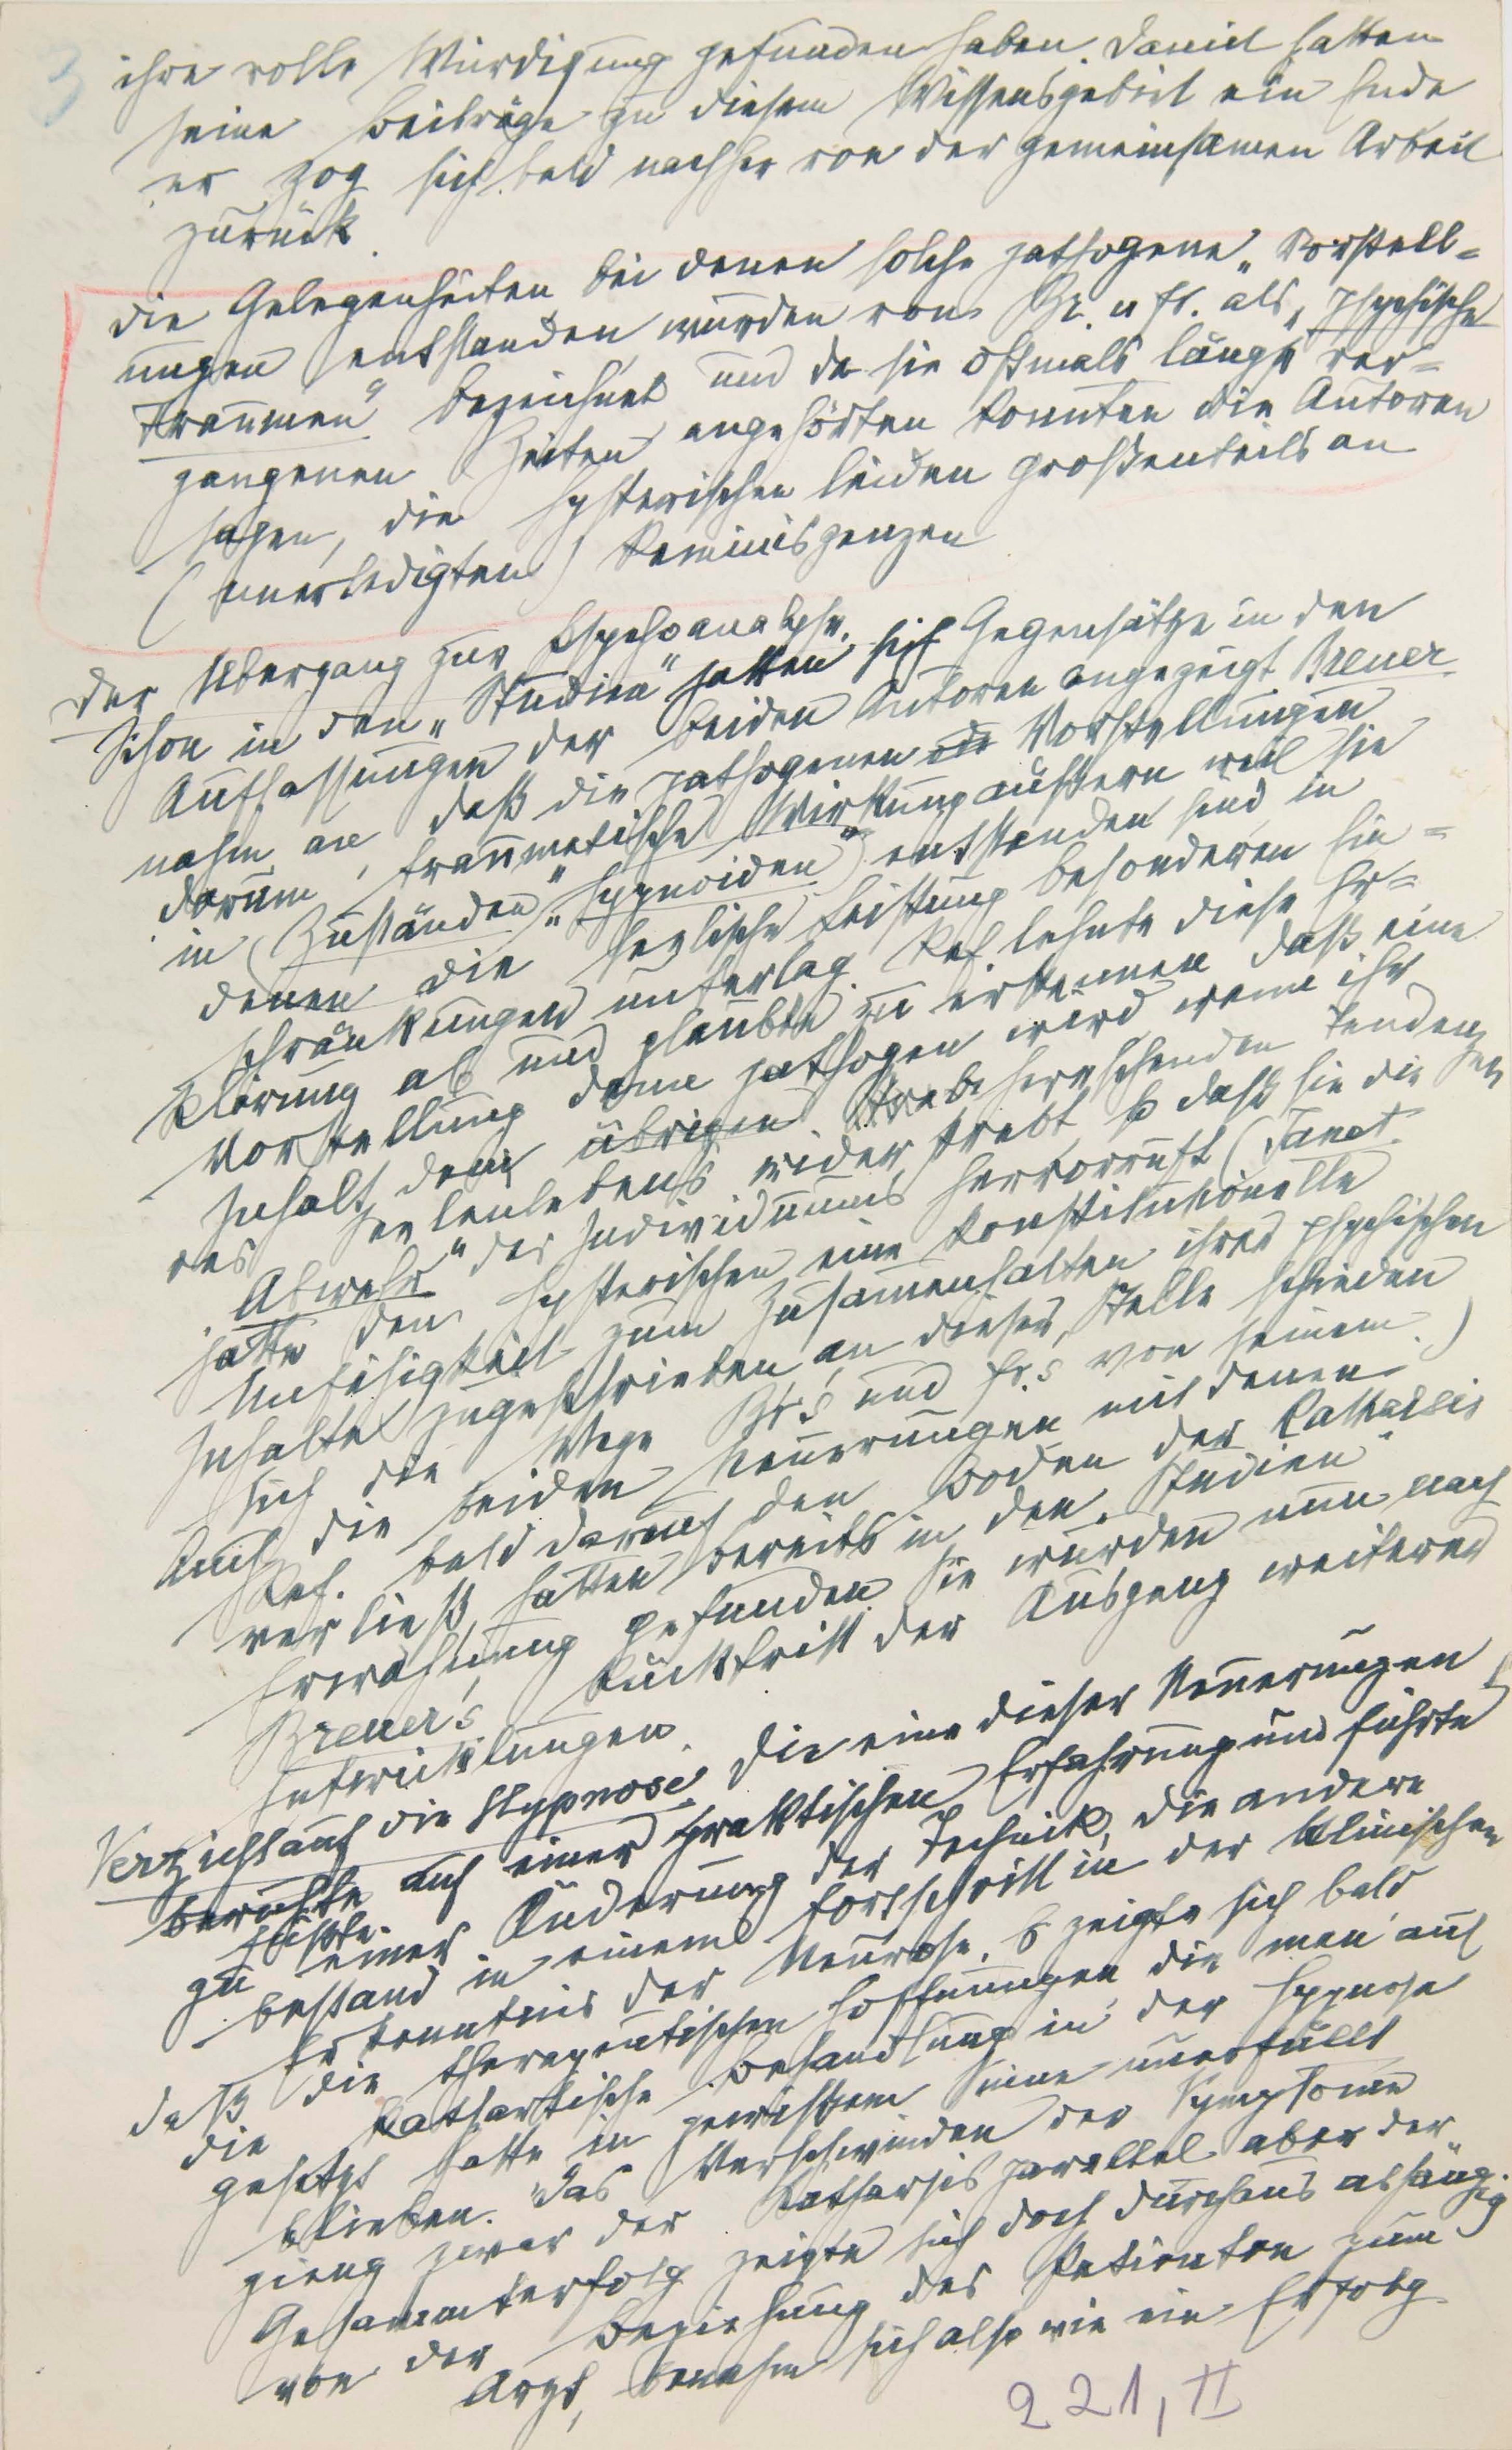 3
ihre volle Würdigung gefunden haben. Damit hatten
seine Beiträge zu diesem Wissensgebiet ein Ende
er zog sich bald nachher von der gemeinsamen Arbeit
zurück.
Die Gelegenheiten bei denen solche pathogene „Vorstell=
ungen entstanden wurden von Br. u fr. als „psychische
Traumen" bezeichnet und da sie oftmals längst ver=
gangenen Zeiten angehörten konnten die Autoren
sagen, die Hysterischen leiden großenteils an
(unerledigten) Reminiszenzen
Der Übergang zur Psychoanalyse.
Schon in den „Studien" hatten sich Gegensätze in den
Auffassungen der beiden Autoren angezeigt Breuer
nahm an daß die pathogenen Vorstellungen
darum, traumatische Wirkung äußern weil sie
in Zuständen „hypnoiden" entstanden sind in
denen die seelische Leistung besonderen Ein=
schränkungen unterlag. Ref lehnte diese Er=
klärung ab und glaubte zu erkennen daß eine
Vorstellung dann pathogen wird wenn ihr
Inhalt den übrigen beherrschenden Tendenzen
des Seelenlebens widerstrebt so daß sie die
„Abwehr" des Individuums hervorruft (Janet
hatte den Hysterischen eine konstitutionelle
Unfähigkeit zum Zusamenhalten ihres psychischen
Inhaltes zugeschrieben, an dieser Stelle schieden
sich die Wege Br's und fr.s von seinem.)
Auch die beiden Neuerungen mit denen
Ref. bald darauf den Boden der Katharsis
verließ, hatten bereits in den „Studien"
Erwähnung gefunden. Sie wurden nun nach
Breuer's Rücktritt der Ausgang weiterer
Entwicklungen.
Verzicht auf die Hypnose. Die eine dieser Neuerungen
beruhte auf einer praktischen Erfahrung und führte
zu einer Änderung der Technik, die andere
bestand in einem Fortschritt in der klinischen
Erkenntnis der Neurose. Es zeigte sich bald
daß die therapeutischen Hoffnungen die man auf
die kathartische Behandlung in der Hypnose
gesetzt hatte in gewißem Sinne unerfüllt
blieben. Das Verschwinden der Symptome
gieng zwar der Katharsis parallel aber der
Gesammterfolg zeigte sich doch durchaus abhängig.
von der Beziehung des Patienten zum
Arzt, benahm sich also wie ein Erfolg
221, II